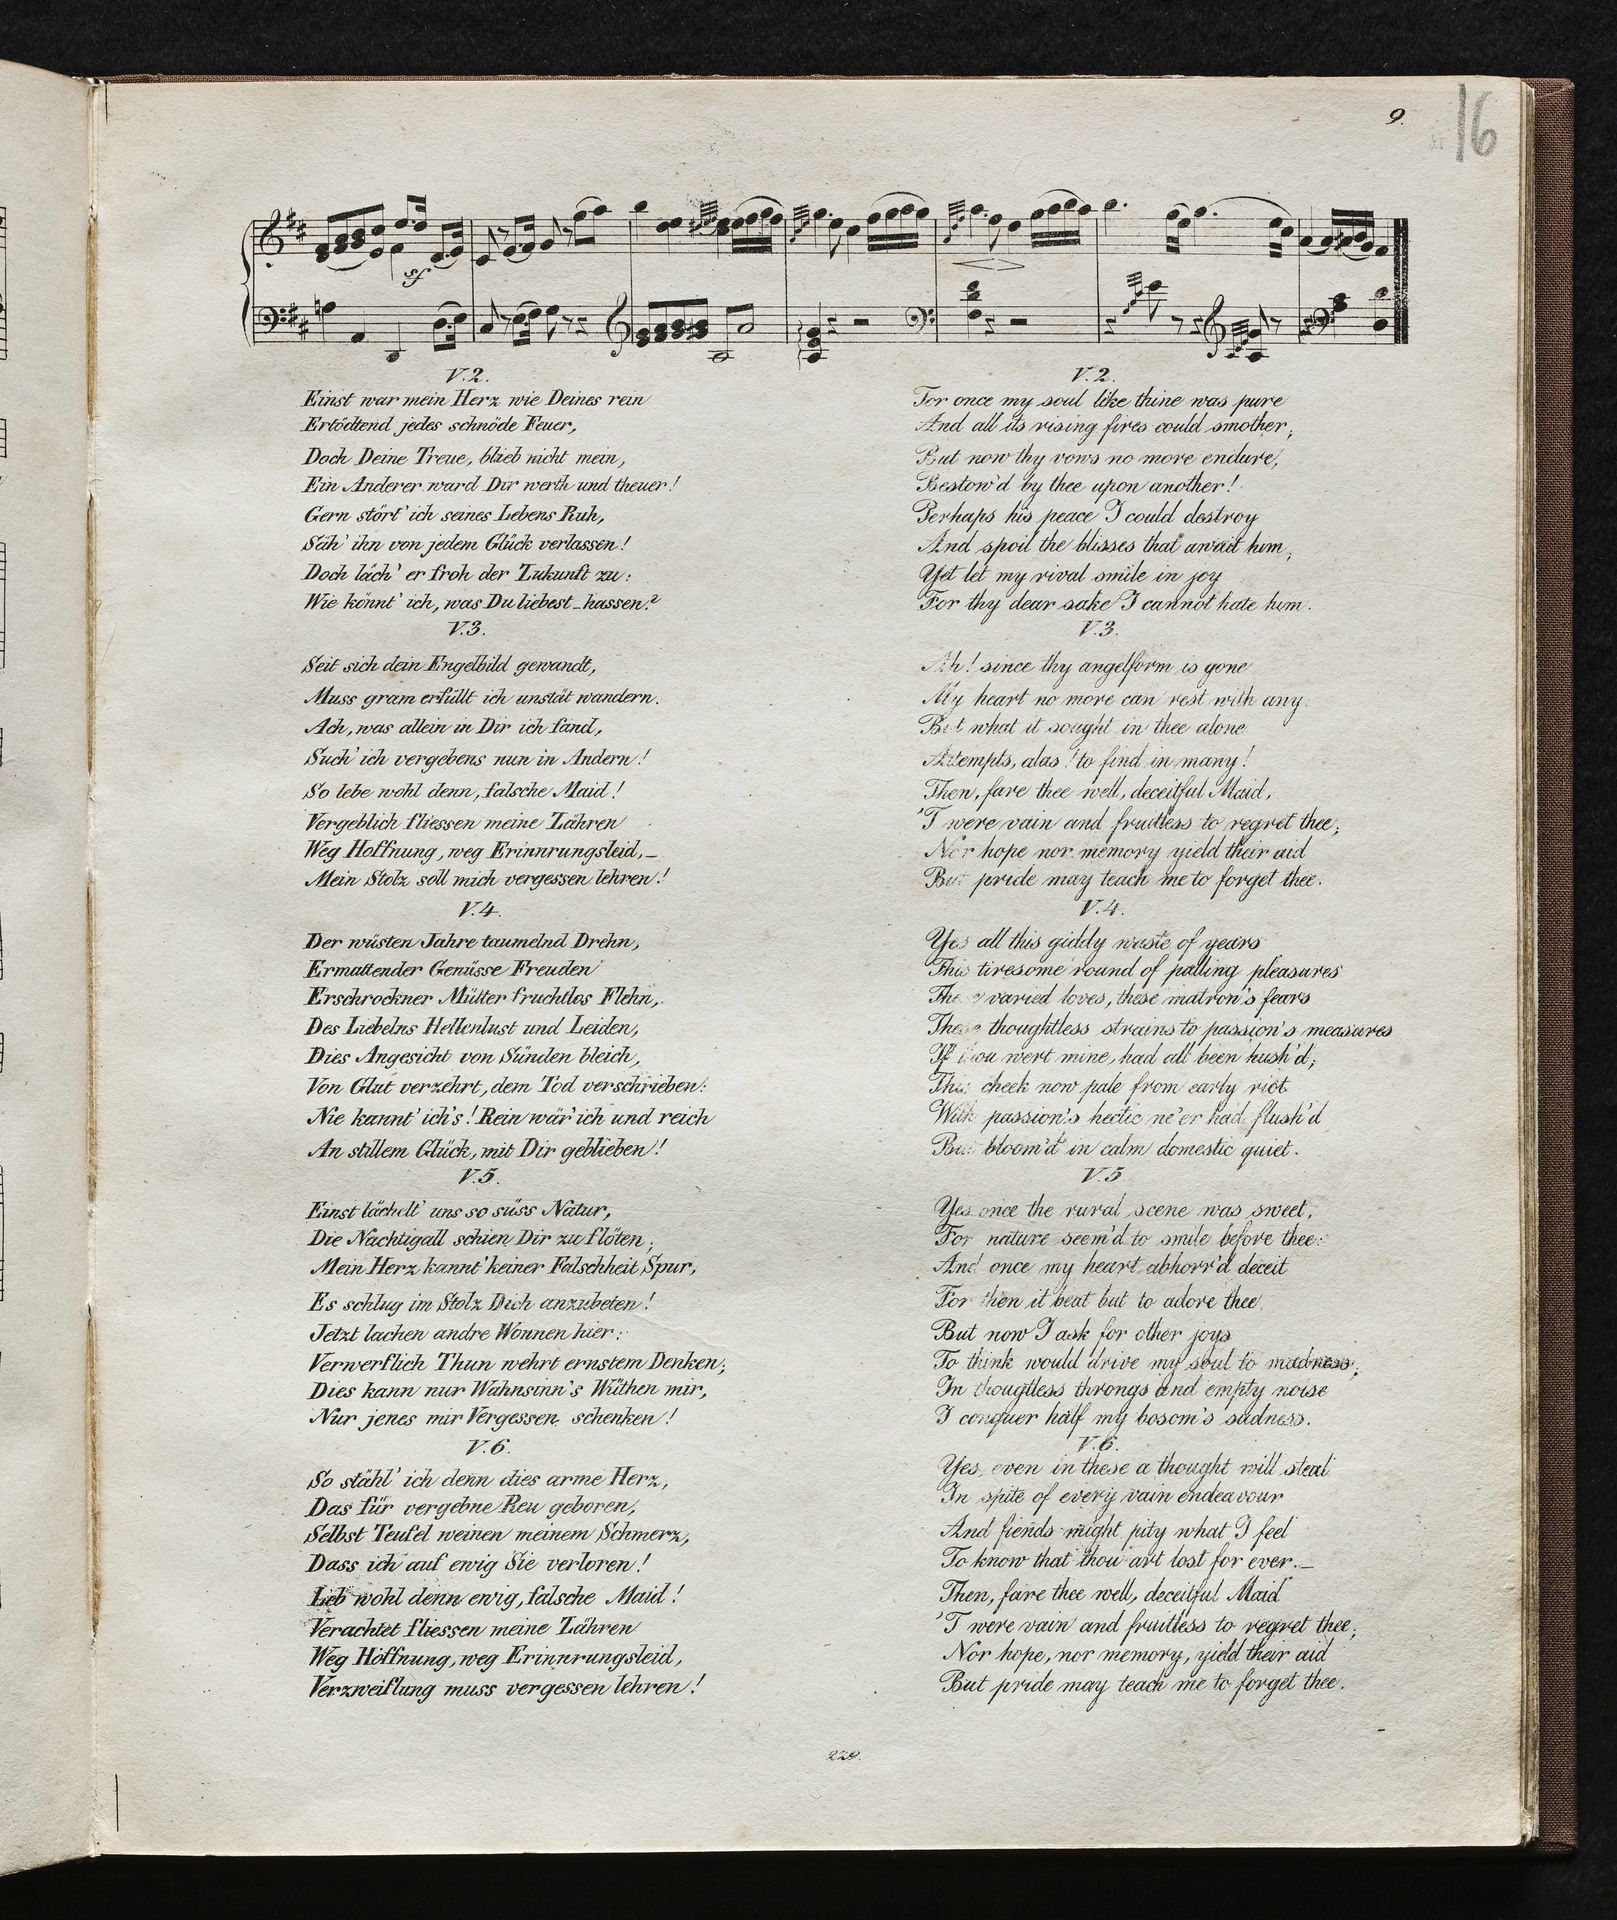 9.
16
sf
V.2.
Einst war mein Herz wie Deines rein
Ertödtend jedes schnöde Feuer,
Doch Deine Treue, blieb nicht mein,
Ein Anderer ward Dir werth und theuer!
Gern stört' ich seines Lebens Ruh,
Säh' ihn von jedem Glück verlassen!
Doch läch' er froh der Zukunft zu:
Wie könnt' ich, was Du liebest_hassen?
V.3.
Seit sich dein Engelbild gewandt,
Muss gram erfüllt ich unstät wandern.
Ach, was allein in Dir ich fand,
Such' ich vergebens nun in Andern!
So lebe wohl denn, falsche Maid!
Vergeblich fliessen meine Zähren
Weg Hoffnung, weg Erinnrungsleid,_
Mein Stolz soll mich vergessen lehren!
V.4.
Der wüsten Jahre taumelnd Drehn,
Ermattender Genüsse Freuden
Erschrockner Mütter fruchtlos Flehn,
Des Liebelns Hellenlust und Leiden,
Dies Angesicht von Sünden bleich,
Von Glut verzehrt, dem Tod verschrieben:
Nie kannt' ich's! Rein wär' ich und reich
An stillem Glück, mit Dir geblieben!
V.5.
Einst lächelt' uns so süss Natur,
Die Nachtigall schien Dir zu flöten;
Mein Herz kannt' keiner Falschheit Spur,
Es schlug im Stolz Dich anzubeten!
Jetzt lachen andre Wonnen hier:
Verwerflich Thun wehrt ernstem Denken;
Dies kann nur Wahnsinn's Wüthen mir,
Nur jenes mir Vergessen schenken!
V.6.
So stähl' ich denn dies arme Herz,
Das für vergebne Reu geboren,
Selbst Teufel weinen meinem Schmerz,
Dass ich auf ewig Sie verloren!
Leb wohl denn ewig, falsche Maid!
Verachtet fliessen meine Zähren
Weg Hoffnung, weg Erinnrungsleid,
Verzweiflung muss vergessen lehren!
V.2.
For once my soul like thine was pure
And all its rising fires could smother;
But now thy vows no more endure,
Bestow'd by thee upon another!
Perhaps his peace I could destroy
And spoil the blisses that await him;
Yet let my rival smile in joy
For thy dear sake I cannot hate him.
V.3.
Ah! since thy angelform is gone
My heart no more can rest with any.
But what it sought in thee alone
Attempts, alas! to find in many!
Then, fare thee well, deceitful Maid,
'T were vain and fruitless to regret thee;
Nor hope nor memory yield their aid
But pride may teach me to forget thee.
V.4.
Yes all this giddy waste of years
This tiresome round of palling pleasures
These varied loves, these matron's fears
These thoughtless strains to passion's measures
If thou wert mine, had all been hush'd;
This cheek now pale from early riot
With passion's hectic ne'er had flush'd
But bloom'd in calm domestic quiet.
V.5
Yes once the rural scene was sweet,
For nature seem'd to smile before thee:
And once my heart abhorr'd deceit
For then it beat but to adore thee
But now I ask for other joys
To think would drive my soul to madness;
In thougtless throngs and empty noise
I conquer half my bosom's sadness.
V.6.
Yes, even in these a thought will steal
In spite of every vain endeavour
And fiends might pity what I feel
To know that thou art lost for ever._
Then, fare thee well, deceitful Maid
'T were vain and fruitless to regret thee;
Nor hope, nor memory, yield their aid
But pride may teach me to forget thee.
229.